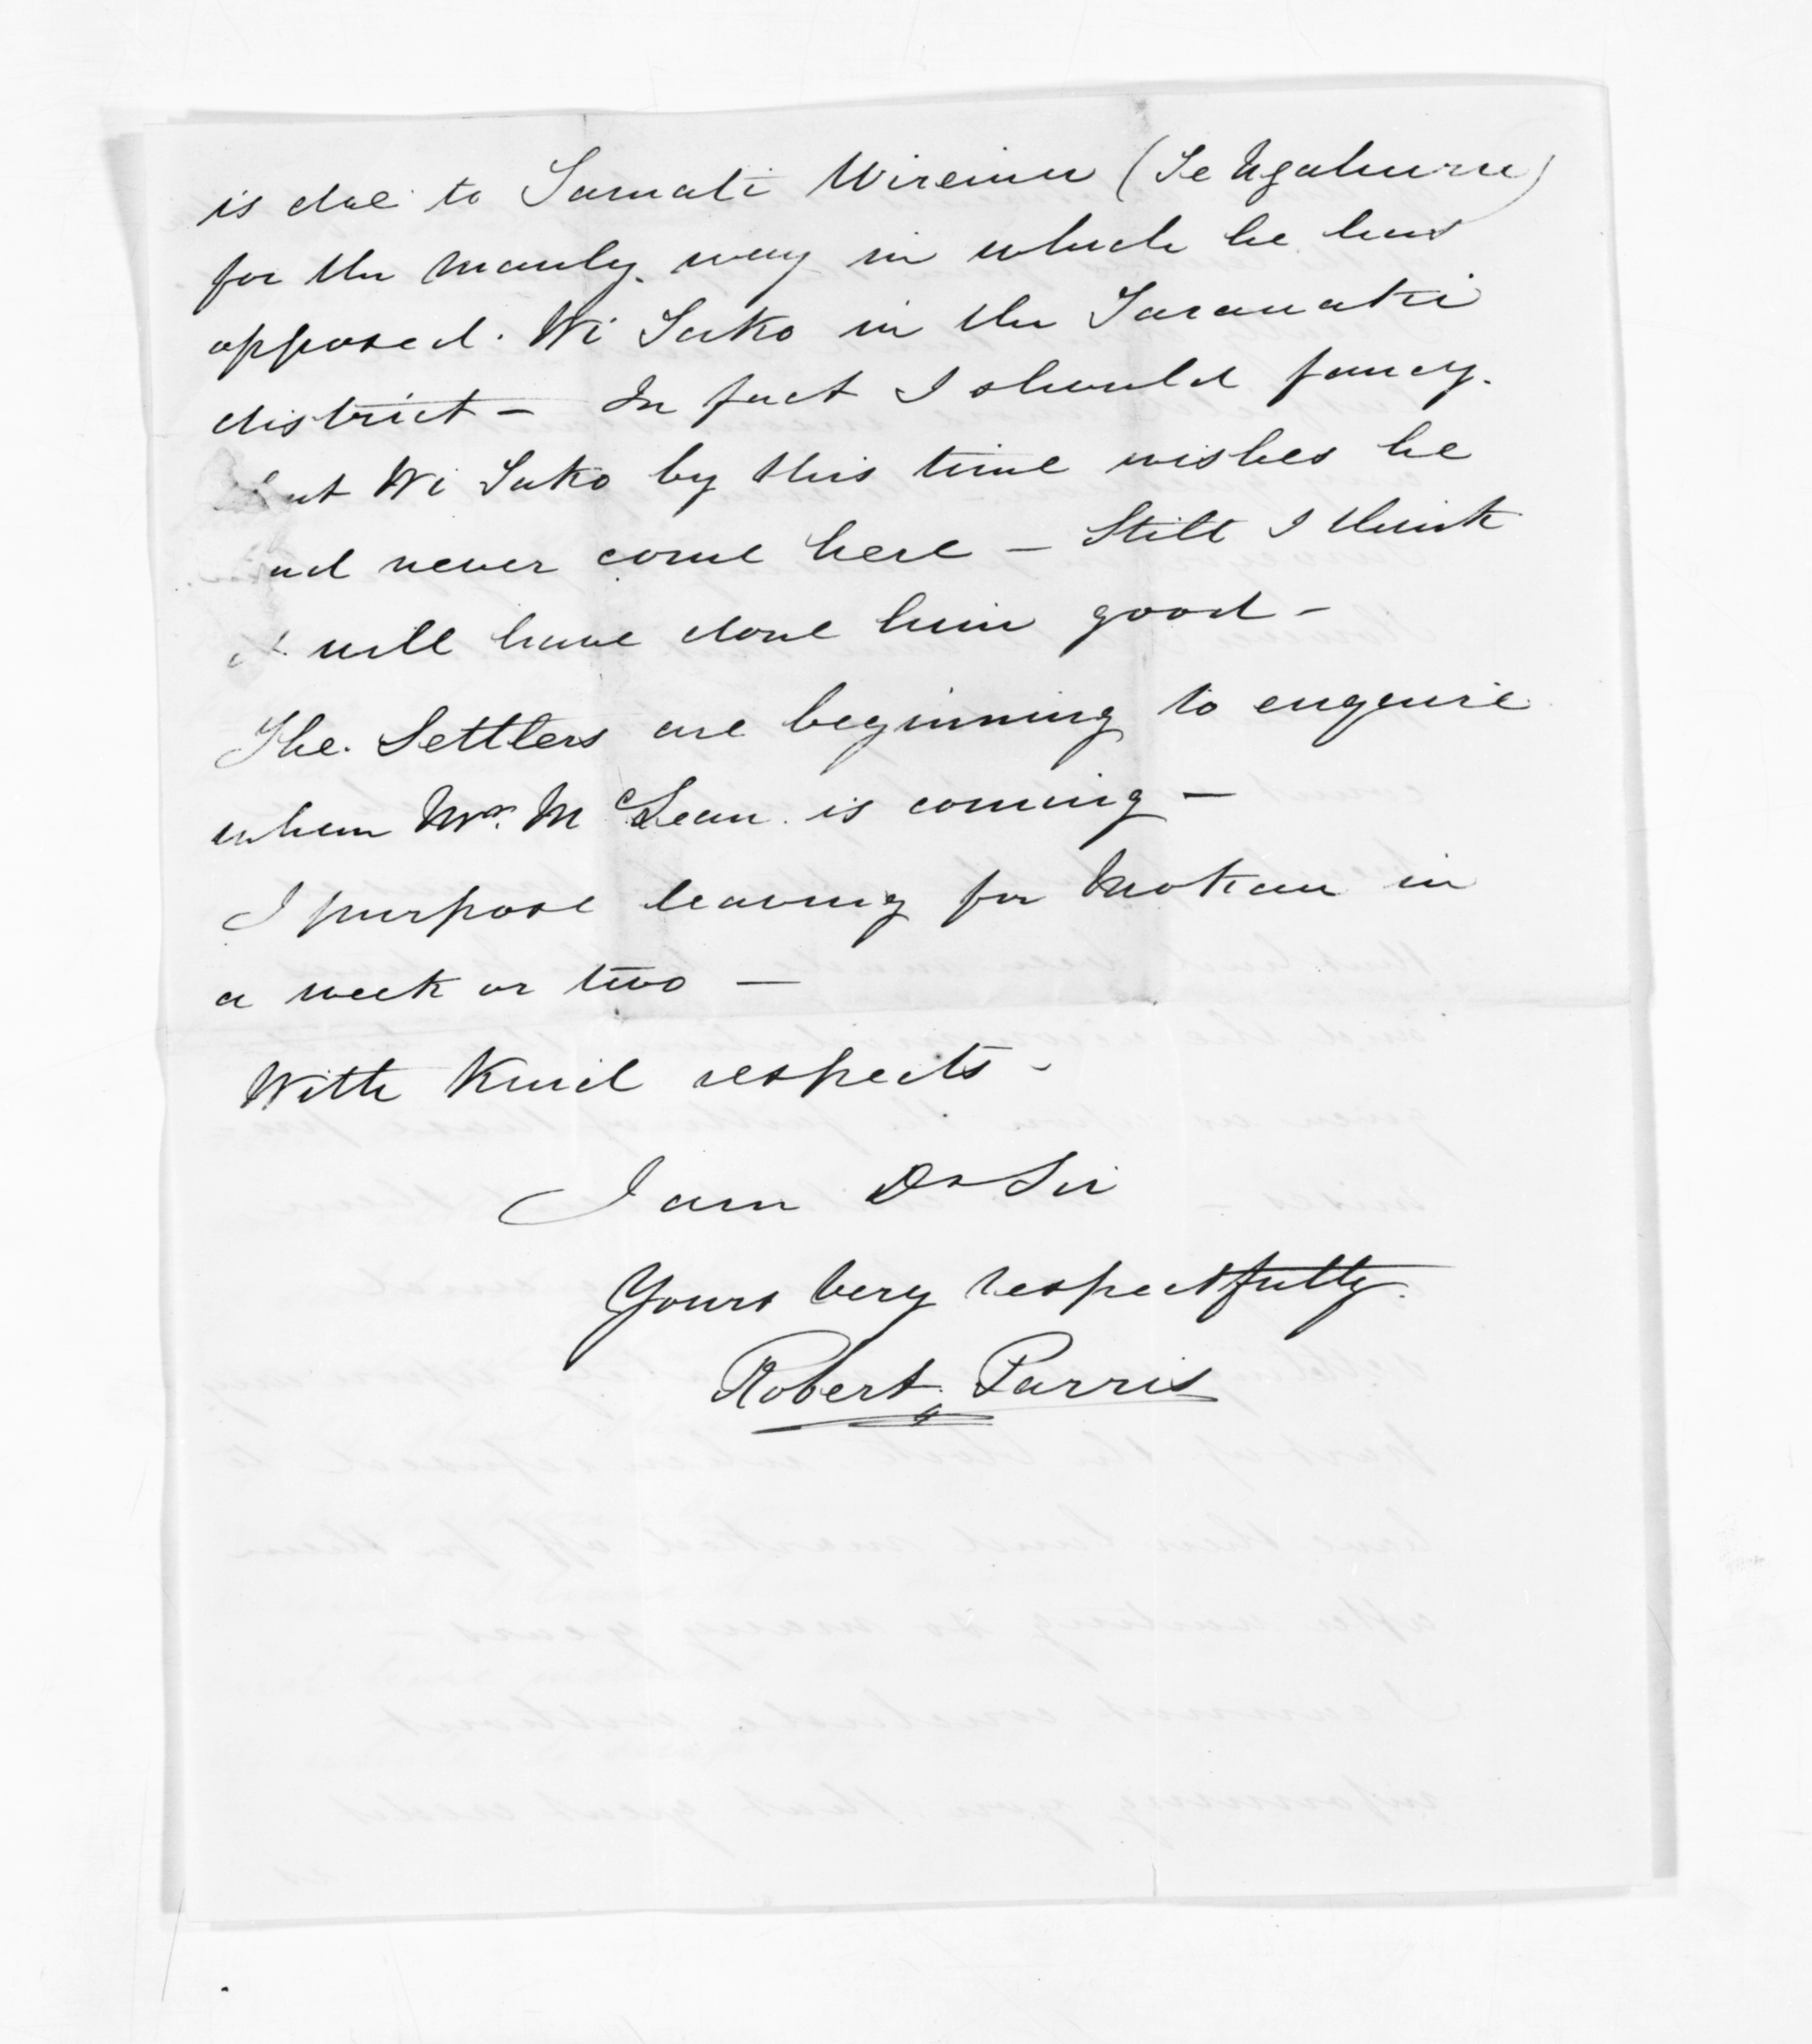 is due to Tamati Wiremu (Te Ngahuru)
for the manly way in which he has
opposed Wi Tako in the Taranaki
district – In fact I should fancy
that Wi Tako by this time wishes he
had never come here – Still I think
it will have done him good –
The Settlers are beginning to enquire
when Mr. McLean is coming –
I purpose leaving for Mokau in
a week or two –
With Kind respects –
I am Dr Sir
Yours very respectfully
Robert Parris